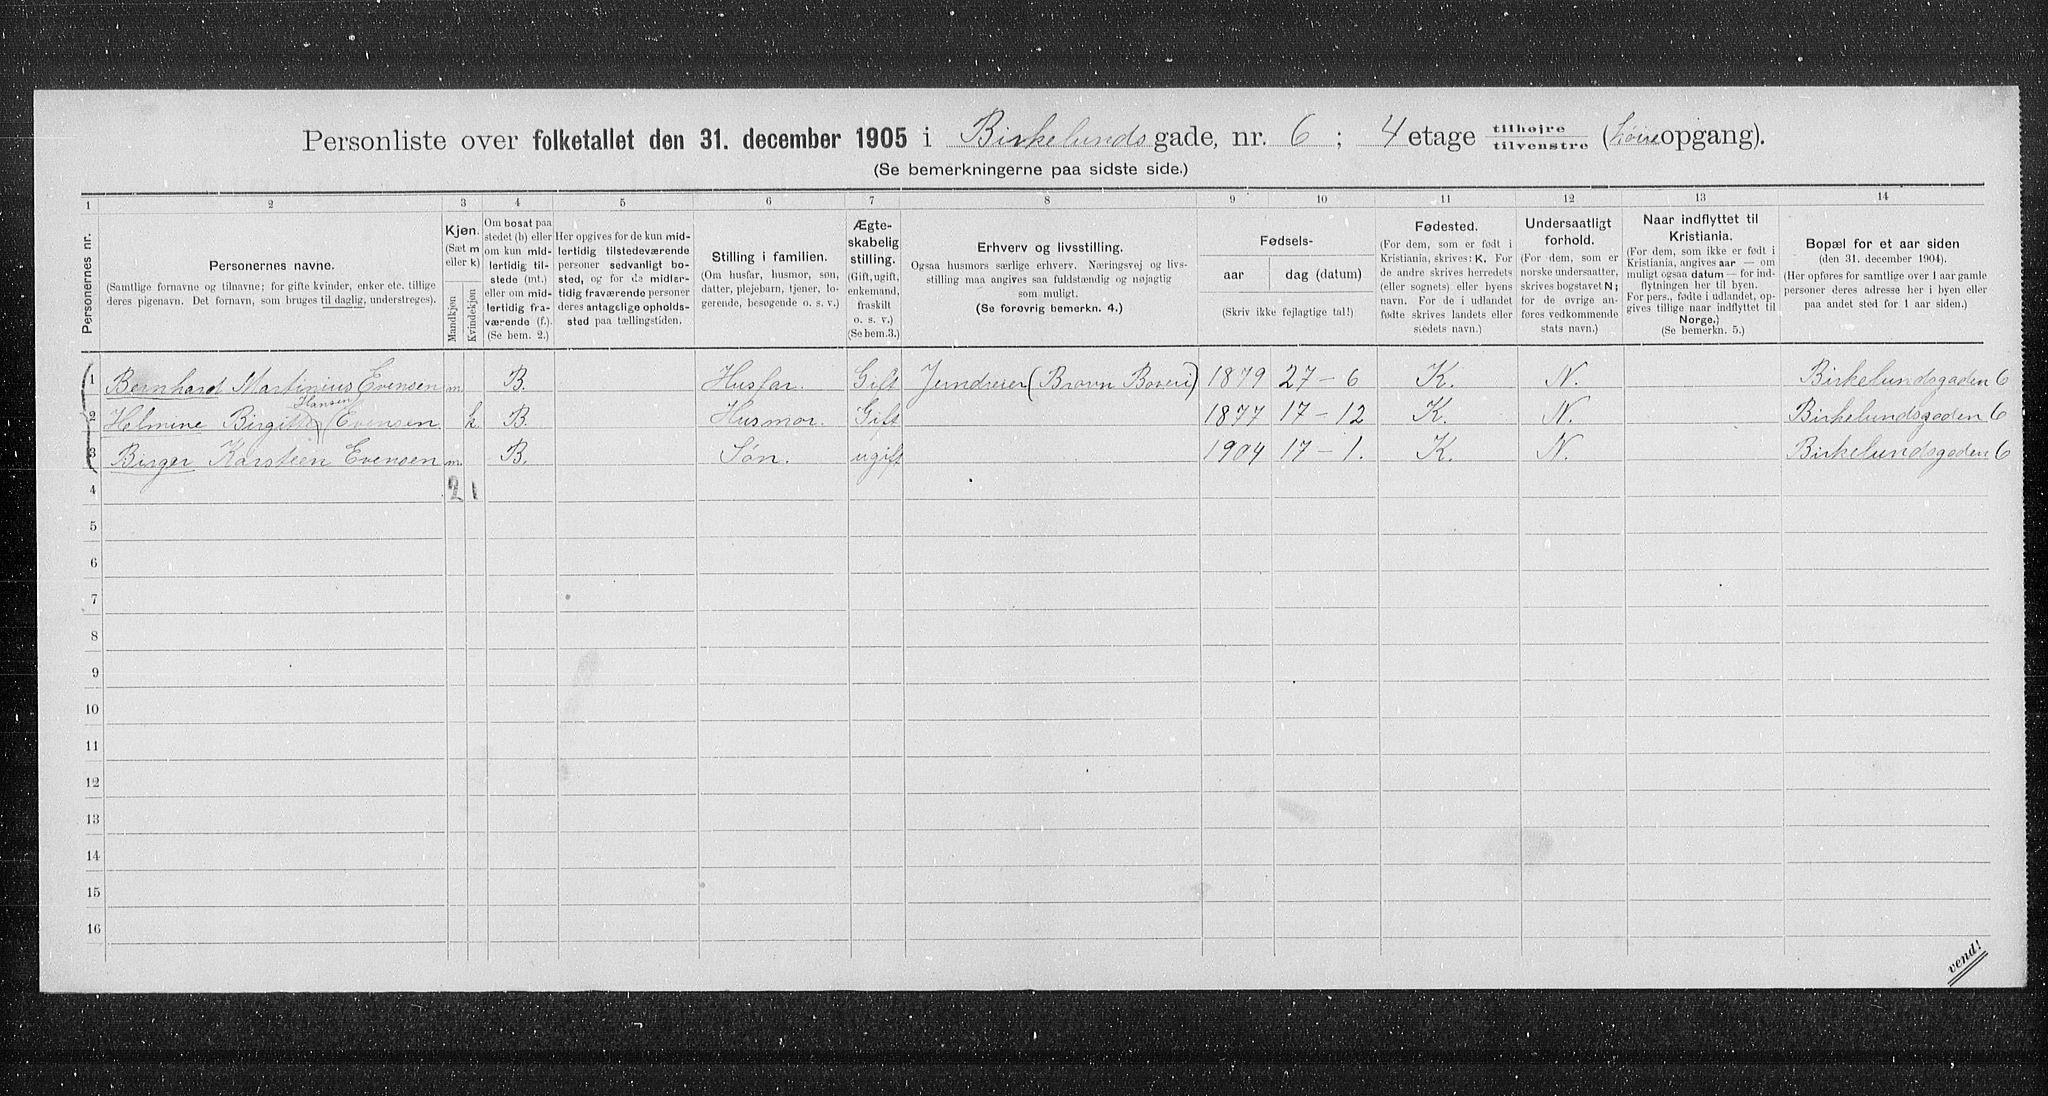 Personliste over folketallet den 31. december 1905 i Birkelunds gade, nr. 6; 4 etage tilhøjre tilvenstre (høire opgang).
(Se bemerkningerne paa sidste side.)
1 2 3 4 5 6 7 8 9 10 11 12 13 14
Personernes nr.
Personernes navne.
(Samtlige fornavne og tilnavne; for gifte kvinder, enker etc. tillige
deres pigenavn. Det fornavn, som bruges til daglig, understreges).
Kjøn.
(Sæt m
eller k)
Mandkjøn
Kvindekjøn
Om bosat paa
stedet (b) eller
om kun mid-
lertidig til-
stede (mt.)
eller om mid-
lertidig fra-
værende (f.).
(Se bem. 2.)
Her opgives for de kun mid-
lertidig tilstedeværende
personer sedvanligt bo-
sted, og for de midler-
tidig fraværende personer
deres antagelige opholds-
sted paa tællingstiden.
Stilling i familien.
(Om husfar, husmor, søn,
datter, plejebarn, tjener, lo-
gerende, besøgende o. s. v.)
Ægte-
skabelig
stilling.
(Gift, ugift,
enkemand,
fraskilt
o. s. v.)
(Se bem.3.)
Erhverv og livsstilling.
Ogsaa husmors særlige erhverv. Næringsvej og livs-
stilling maa angives saa fuldstændig og nøjagtig
som muligt.
(Se forøvrig bemerkn. 4.)
Fødsels-
aar dag (datum)
(Skriv ikke fejlagtige tal!)
Fødested.
(For dem, som er født i
Kristiania, skrives: K. For
de andre skrives herredets
(eller sognets) eller byens
navn. For de i udlandet
fødte skrives landets eller
stedets navn.)
Undersaatligt
forhold.
(For dem, som er
norske undersaatter,
skrives bogstavet N;
for de øvrige an-
føres vedkommende
stats navn.)
Naar indflyttet til
Kristiania.
(For dem, som ikke er født i
Kristiania, angives aar — om
muligt ogsaa datum — for ind-
flytningen her til byen.
For pers., fødte i udlandet, op-
gives tillige naar indflyttet til
Norge.)
(Se bemerkn. 5.)
Bopæl for et aar siden
(den 31. december 1904).
(Her opføres for samtlige over 1 aar gamle
personer deres adresse her i byen eller
paa andet sted for 1 aar siden.)
1 Bernhard Martinius Evensen m. B. Husfar. Gift Jerndreier (Brown Boveri) 1879 27-6 K. N. Birkelundsgaden 6
Hansen
2 Helmine Birgitte Evensen k. B. Husmor. Gift 1877 17-12 K. N. Birkelundsgaden 6
3 Birger Karsteen Evensen m. B. Søn. ugift 1904 17-1. K. N. Birkelundsgaden 6
4 2 1
5
6
7
8
9
10
11
12
13
14
15
16
vend!